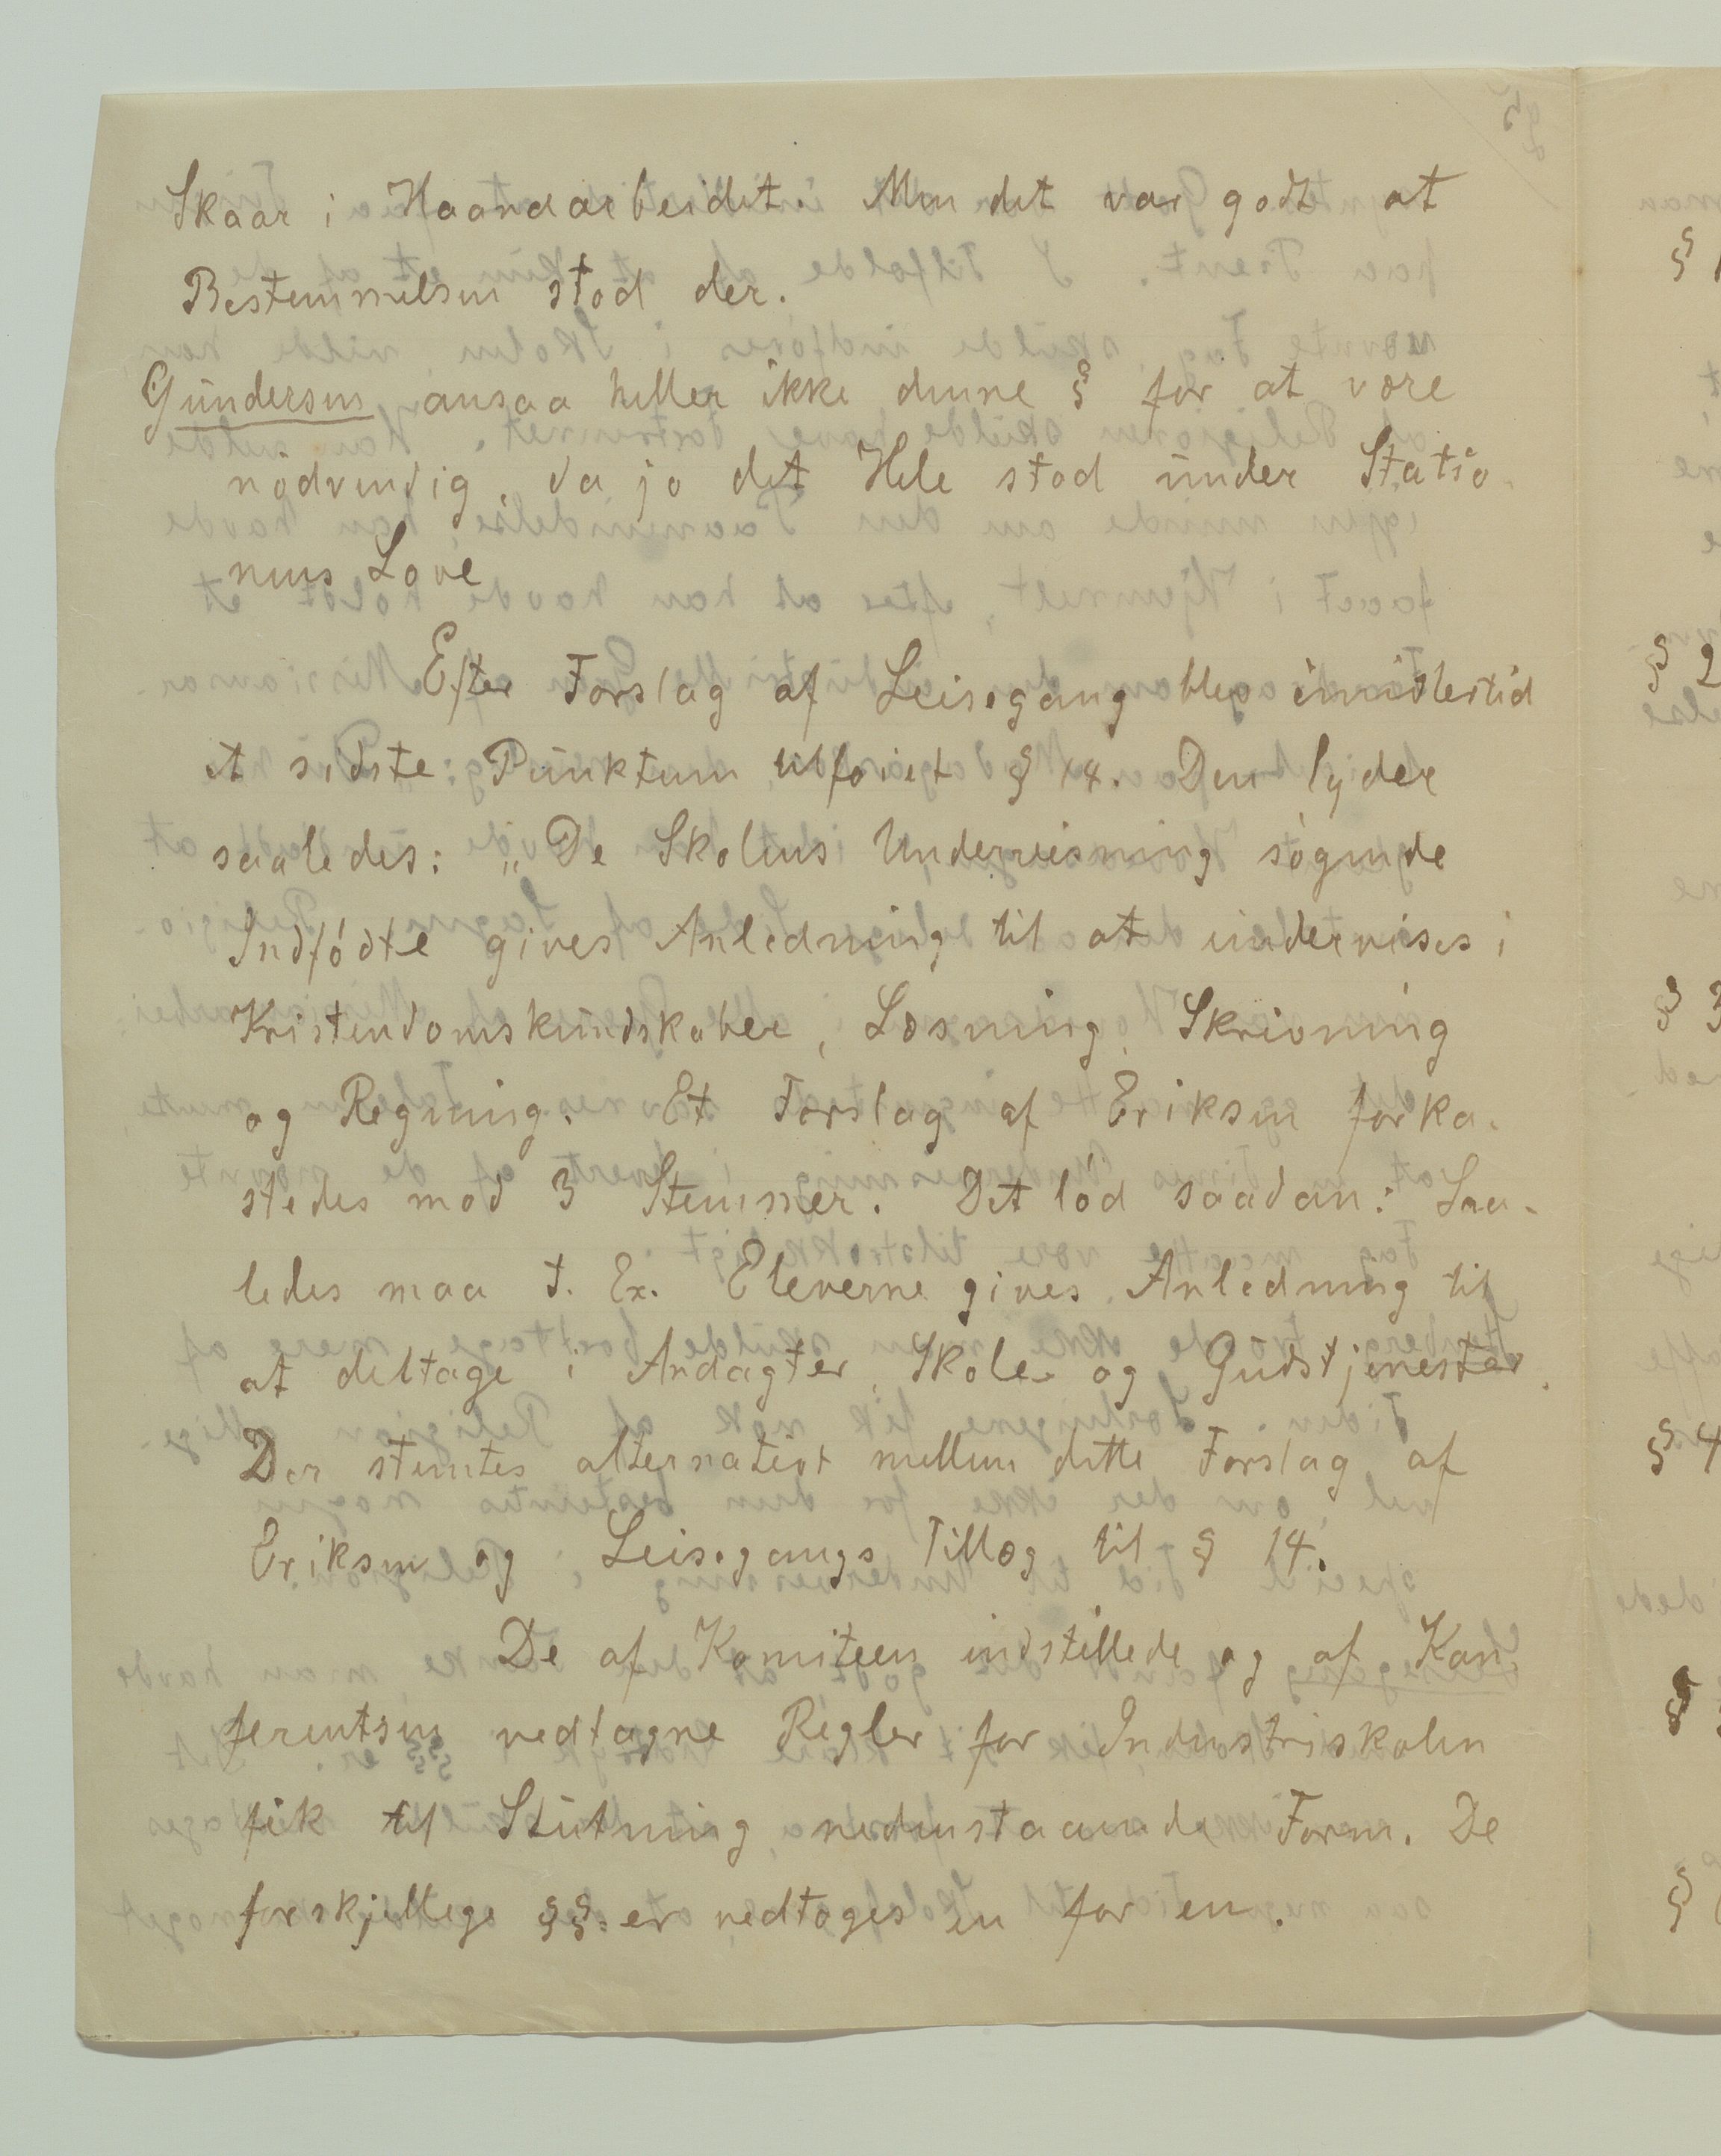 Skaar i Haandarbeidet. Men det var godt at
Bestemmelsen stod der.
Gundersen ansaa heller ikke denne § for at være
nødvendig, da jo det Hele stod under Statio-
nens Love
Efter Forslag af Leisegang blev imidlertid
et sidste Punktum tilføiet § 14. Den lyder
saaledes: „De Skolens Underviisning søgende
Indfødte gives Anledning til at undervises i
Kristendomskundskaber, Læsning, Skrivning
og Regning. Et Forslag af Eriksen forka-
stedes mod 3 Stemmer. Det lød saadan: Saa-
ledes maa t. Ex. Eleverne gives Anledning til
at deltage i Andagter, Skole og Gudstjenester.
Der stemtes alternativt mellem dette Forslag af
Eriksen og Leisegangs Tillæg til § 14.
De af Komiteen indstillede og af Kon-
ferentsen vedtagne Regler for Industriskolen
fik til Slutning nedenstaaende Form. De
forskjellige §§-er vedtoges en for en.
§
§ 2
§ 3
§ 4
§
§